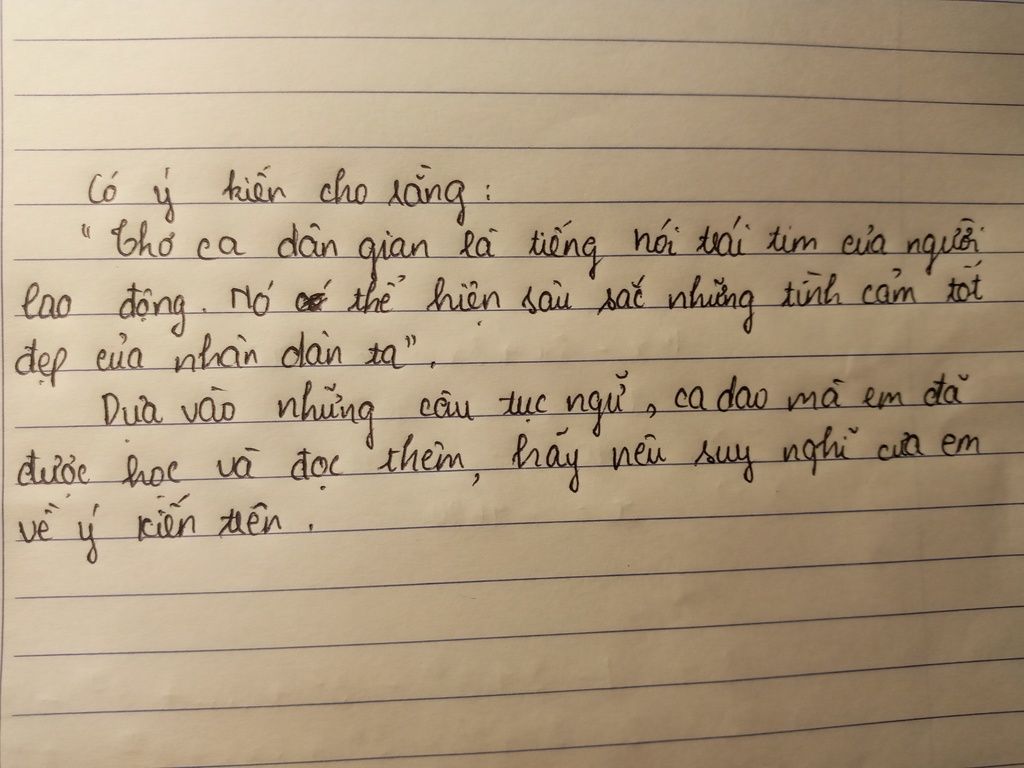 Có ý kiến cho rằng :
"Thơ ca dân gian là tiếng nói trái tim của người
lao động. Nó thể hiện sâu sắc những tình cảm tốt
đẹp của nhân dân ta".
Dựa vào những câu tục ngữ, ca dao mà em đã
được học và đọc thêm, hãy nêu suy nghĩ của em
về ý kiến trên.